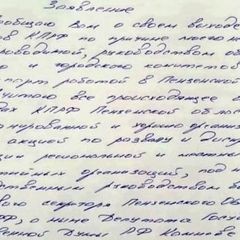 Заявление
ообщаю Вам о своем выходе
ов КПРФ по причине моего не
роводимой, руководством об
и городского комитетов
парт. работой в Пензенской
читаю все происходящее в
дах КПРФ Пензенской обл
нированной и хорошо органи
акцией по развалу и диск
ции региональной и местны
тейных организаций, под н
дственным руководством б
вого секретаря Пензенского Об
РФ, а ныне Депутата Госу
венной Думы РФ